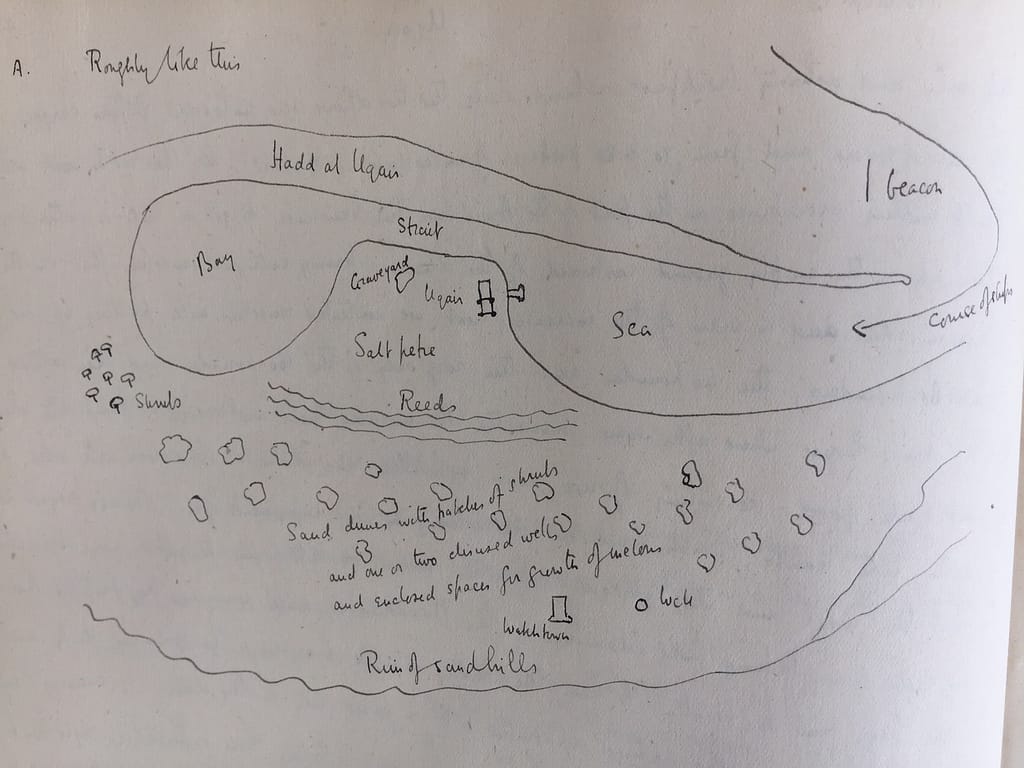 A. Roughly like this
Hadd al Uqair
beacon
Strait
Bay
Graveyard
Uqair
Sea
course of ships
Salt petre
Shrubs
Reeds
Sand dunes with patches of shrubs
and one or two disused wells
and enclosed spaces for growth of melons
Watchtower
Rim of sandhills